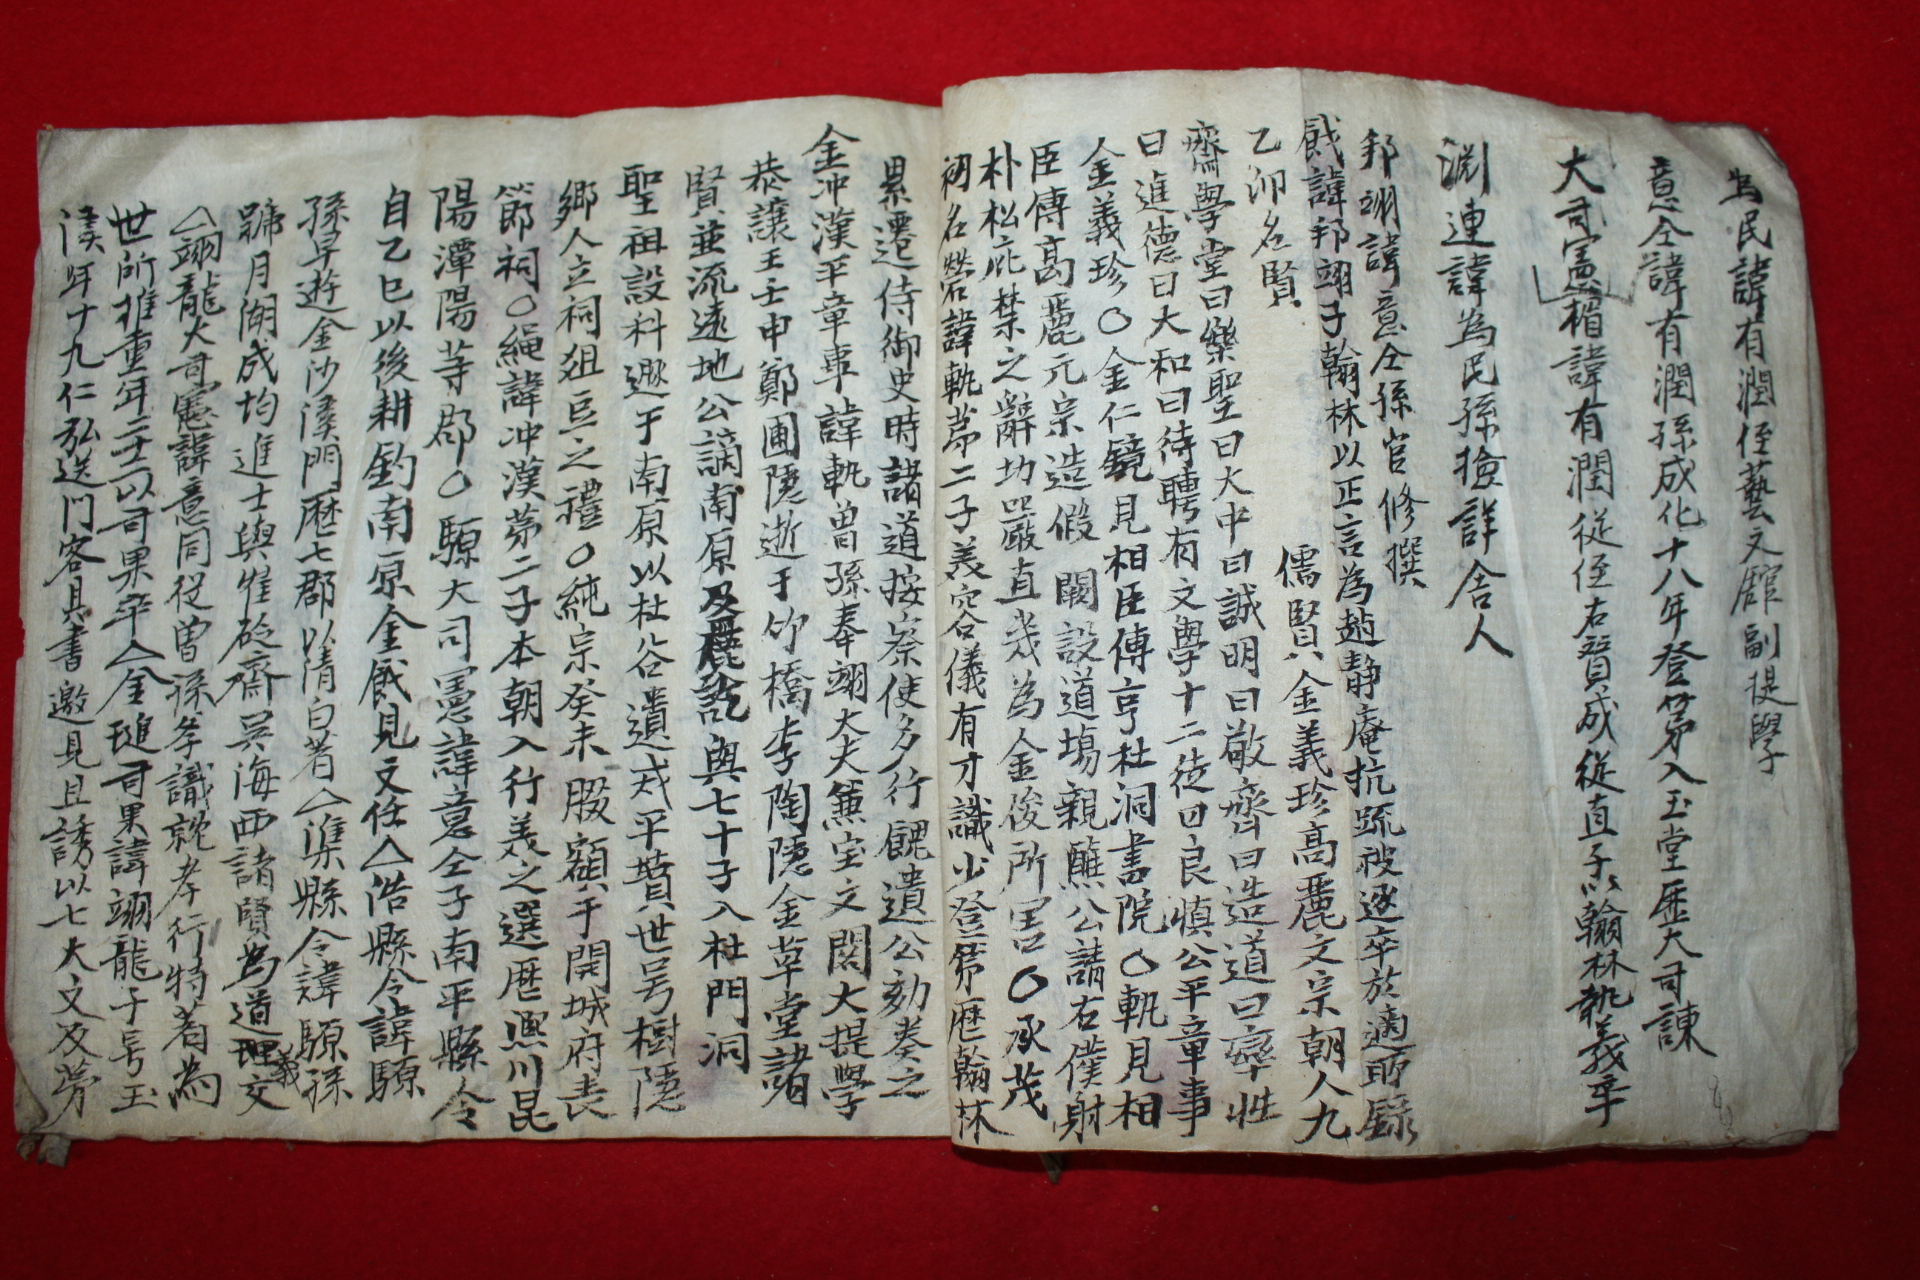 為民諱有潤侄藝文館副提學
意仝諱有潤孫成化十八年登第入玉堂歷大司諫
大司憲楯諱有潤從侄右贊成從直子以翰林執義卒
淵連諱為民孫撿詳舍人
邦翊諱意仝孫官修撰
餞諱邦翊子翰林以正言為趙靜庵抗疏被逐卒於適所錄
乙卯名賢
儒賢金義珍高麗文宗朝人九
齋學堂曰樂聖曰大中曰誠明曰敬齊曰造道曰率性
曰進德曰大和曰待聘有文學十二徒曰良慎公平章事
金義珍〇金仁鏡見相臣傳亨杜洞書院〇軌見相
臣傳高麗元宗造假闕設道場親醮公請右僕射
朴松庇禁之辭切嚴直幾為金俊所害〇承茂
初名諱軌第二子義容儀有才識少登第歷翰林
累遷侍御史時諸道按察使多行餽遺公劾奏之
金冲漢平章事諱軌曾孫奉翊大夫簾宝文閣大提學
恭讓王壬申鄭圃隱逝于竹橋李陶隱金草堂諸
賢並流遠地公謫南原及訖與七十子入杜門洞
聖祖設科遯于南原以杜谷遺戎平賁世号樹隱
鄉人立祠俎豆之禮〇純宗癸未腏額于開城府表
節祠〇繩諱冲漢第二子本朝入行義之選歷㴐川昆
陽潭陽等郡〇騵大司憲諱意仝子南平縣令
自乙巳以後耕釣南原金餞見文任△浩縣令諱騵
孫早遊金沙溪門歷七郡以清白著△準縣令諱騵孫
號月湖成均進士與崔砭齋吳海西諸賢為道義交
△翊龍大司憲諱意同從曾孫孝識就孝行特著為
世所推重年二十二以司果卒△金璡司果諱翊龍子号玉
溪年十九仁弘送門客具書邀見且誘以七大文及芳